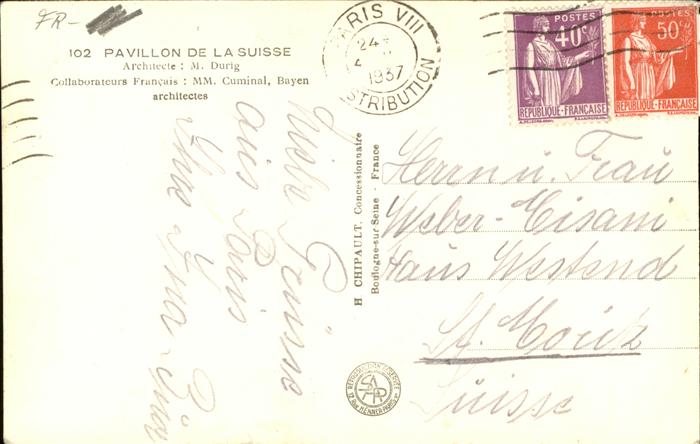 FR-
102 PAVILLON DE LA SUISSE
Architecte : M. Durig
Collaborateurs Français : MM. Cuminal, Bayen
architectes
PARIS VIII
24
1937
DISTRIBUTION
POSTES
40c
REPUBLIQUE-FRANÇAISE
POSTES
50c
REPUBLIQUE-FRANÇAISE
Liebe Grüsse
aus Paris
Ihre
H CHIPAULT, Concessionnaire
Boulogne-sur Seine - France
Herrn u. Frau
Weber-Eisani
Haus Westend
St. Moritz
Suisse